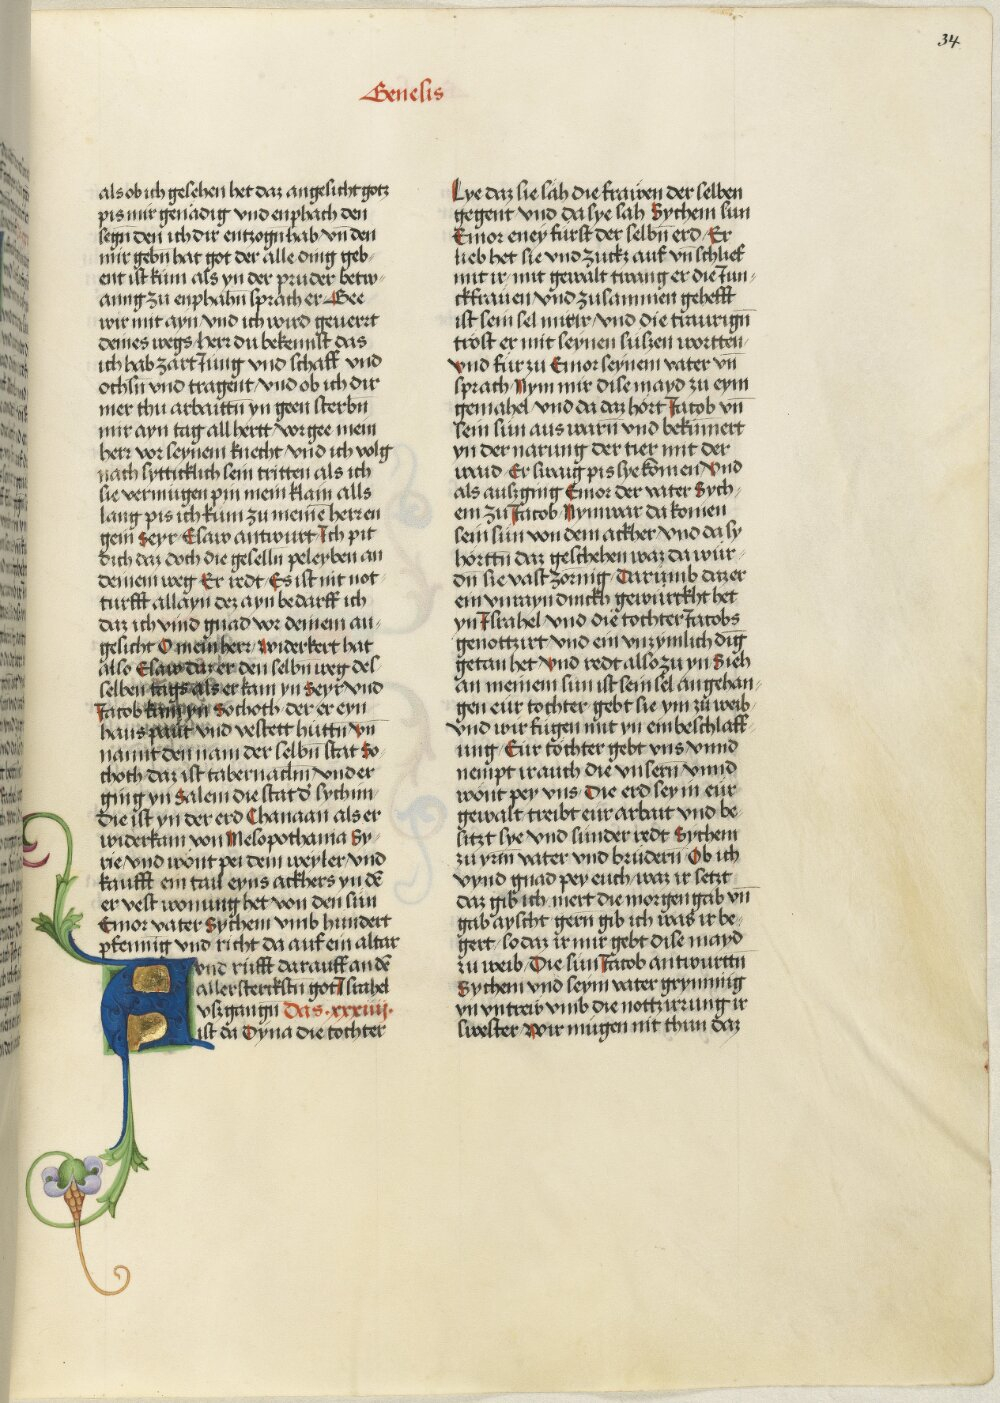 34
Genesis
als ob ich gesehen het daz angesicht gotz
pis mir genadig vnd enphach den
segn den ich dir entzogn hab vn̄ den
mir gebn̄ hat got der alle ding geb-
ent ist kům als yn der pruder betw-
anng zu enphahn sprach er Gee
wir mit ayn vnd ich wird geuerrt
deines wegs herr du bekennst das
ich hab zart Jung vnd schaff vnd
ochsn̄ vnd tragent vnd ob ich dir
mer thu arbaittn̄ yn geen sterbn̄
mir ayn tag all hertt vorgee mein
herr vor seynem knecht vnd ich volg
nach sytticklich sein tritten als ich
sie vermügen pin mein klain alls
lang pis ich kům zu meinē herren
gein Seyr Esaw antwurt Ich pit
dich daz doch die geselln̄ peleyben an
deinem weg Er redt Es ist nit not-
turfft allayn dez ayn bedarff ich
daz ich vind gnad vor deinem an-
gesicht O mein herr widerkert hat
also Esaw der er den selbn̄ weg des
selben tags als er kam yn Seyr vnd
Jacob kam yn Sochoth der er eyn
haus paut vnd vestett hüttn̄ vn̄
nannt den nam der selbn̄ stat So
choth daz ist tabernacln̄ vnd er
ging yn Salem die stat d̄ sychim
die ist yn der erd Chanaan als er
widerkam von Mesopothamia Sy-
rie vnd wont pei dem weyler vnd
kaufft ein tail eyns ackhers yn dē
er vest wonung het von den sün
Emor vater Sychem vmb hundert
pfennig vnd richt da auf ein altar
vnd rüfft darauff an dē
allersterckstn̄ got Israhel
vszgangn̄ Das ·xxxiiij·
ist da Dyna die tochter
Lye daz sie sah die frawen der selben
gegent vnd da sye sah Sychem sun
Emor eney fürst der selbn̄ erd Er
lieb het sie vnd zuckz auf vn̄ schlief
mit ir mit gewalt twang er die Jun-
ckfrauen vnd zusammen gehefft
ist sein sel mit ir vnd die traurign̄
trost er mit seynen süszen wortten
vnd fůr zu Emor seynem vater vn̄
sprach Nym mir dise mayd zu eym
gemahel vnd da daz hort Jacob vn̄
sein sün aus warn vnd bekümert
yn der narung der tier mit der
waid Er swaig pis sye komen vnd
als auszging Emor der vater Sych-
em zu Jacob Nym war da komen
sein sün von dem ackher vnd da sy
hörttn̄ daz geschehen waz da wur-
dn̄ sie vast zornig Darumb daz er
ein vnrayn dinckh gewürckht het
yn Israhel vnd die tochter Jacobs
genottzürt vnd ein vnzymlich dig
getan het vnd redt also zu yn Sich
an meinem sun ist sein sel angehan-
gen eür tochter gebt sie ym zů weib
vnd wir fügen mit yn ein beschlaff-
ung Eür töchter gebt vns vnnd
nempt ir auch die vnsern vnnd
wont pey vns Die erd sey in eür
gewalt treibt eür arbait vnd be-
sitzt sye vnd sunder redt Sychem
zu yrm vater vnd brüdern Ob ich
vynd gnad pey euch waz ir setzt
daz gib ich mert die morgengab vn̄
gab ayscht gern gib ich was ir be-
gert so daz ir mir gebt dise mayd
zu weib Die sün Jacob antwurttn̄
Sychem vnd seym vater grymmig
yn vntrew vmb die nottzurung ir
swester Wir mügen nit thun daz